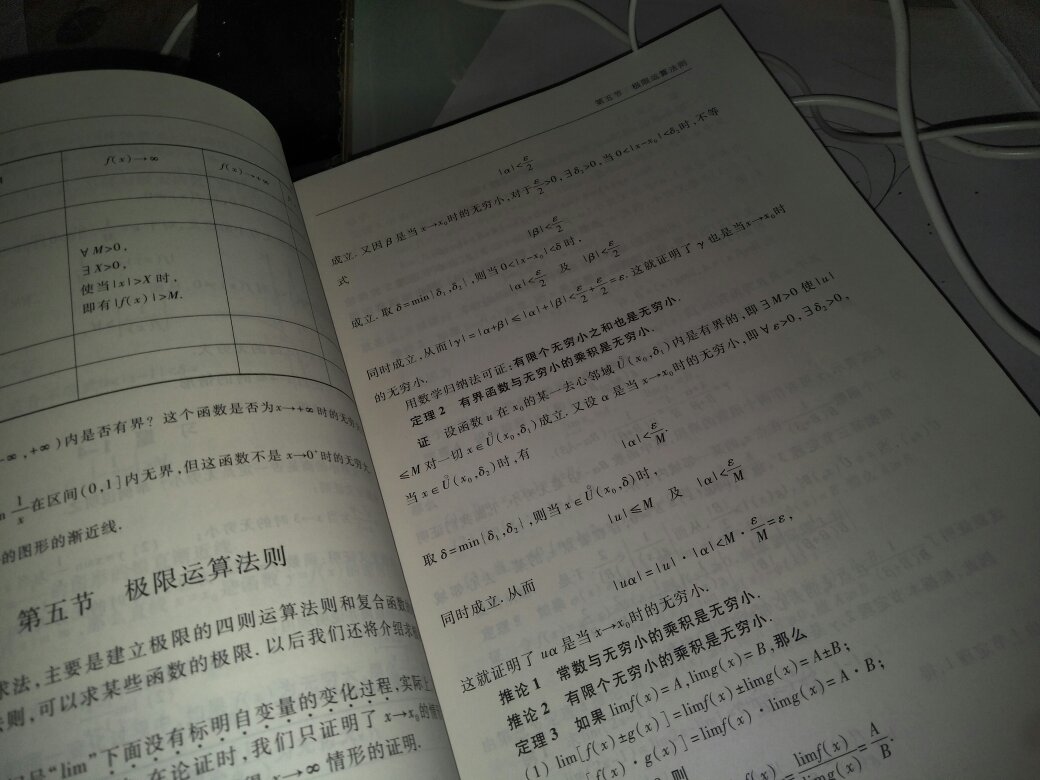 f(x)→∞
f(x)→+∞
∀M>0,
∃X>0,
使当|x|>X时,
即有|f(x)|>M.
-∞,+∞)内是否有界?这个函数是否为x→+∞时的无穷
1/x 在区间(0,1]内无界,但这函数不是x→0⁺时的无穷大.
的图形的渐近线.
第五节 极限运算法则
求法,主要是建立极限的四则运算法则和复合函数的
法则,可以求某些函数的极限.以后我们还将介绍求
"lim"下面没有标明自变量的变化过程,实际上
在论证时,我们只证明了x→x₀的情
x→∞情形的证明.
第五节 极限运算法则
|α|<ε/2
成立.又因β是当x→x₀时的无穷小,对于ε/2>0,∃δ₂>0,当0<|x-x₀|<δ₂时,不等
式
|β|<ε/2
成立.取δ=min{δ₁,δ₂},则当0<|x-x₀|<δ时,
|α|<ε/2 及 |β|<ε/2
同时成立,从而|γ|=|α+β|≤|α|+|β|<ε/2+ε/2=ε.这就证明了γ也是当x→x₀时
的无穷小.
用数学归纳法可证:有限个无穷小之和也是无穷小.
定理2 有界函数与无穷小的乘积是无穷小.
证 设函数u在x₀的某一去心邻域Ů(x₀,δ₁)内是有界的,即∃M>0使|u|
≤M对一切x∈Ů(x₀,δ₁)成立.又设α是当x→x₀时的无穷小,即∀ε>0,∃δ₂>0,
当x∈Ů(x₀,δ₂)时,有
|α|<ε/M.
取δ=min{δ₁,δ₂},则当x∈Ů(x₀,δ)时,
|u|≤M 及 |α|<ε/M
同时成立.从而
|uα|=|u|·|α|<M·ε/M=ε,
这就证明了uα是当x→x₀时的无穷小.
推论1 常数与无穷小的乘积是无穷小.
推论2 有限个无穷小的乘积是无穷小.
定理3 如果limf(x)=A,limg(x)=B,那么
(1) lim[f(x)±g(x)]=limf(x)±limg(x)=A±B;
[f(x)·g(x)]=limf(x)·limg(x)=A·B;
则
limf(x)/limg(x)=A/B.